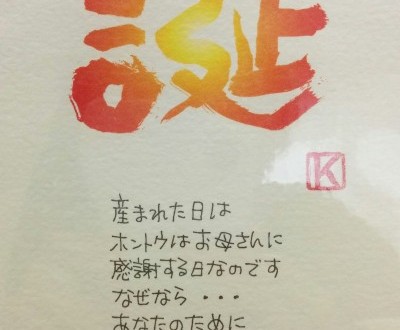 誕
K
産まれた日は
ホントウはお母さんに
感謝する日なのです
なぜなら・・・
あなたのために